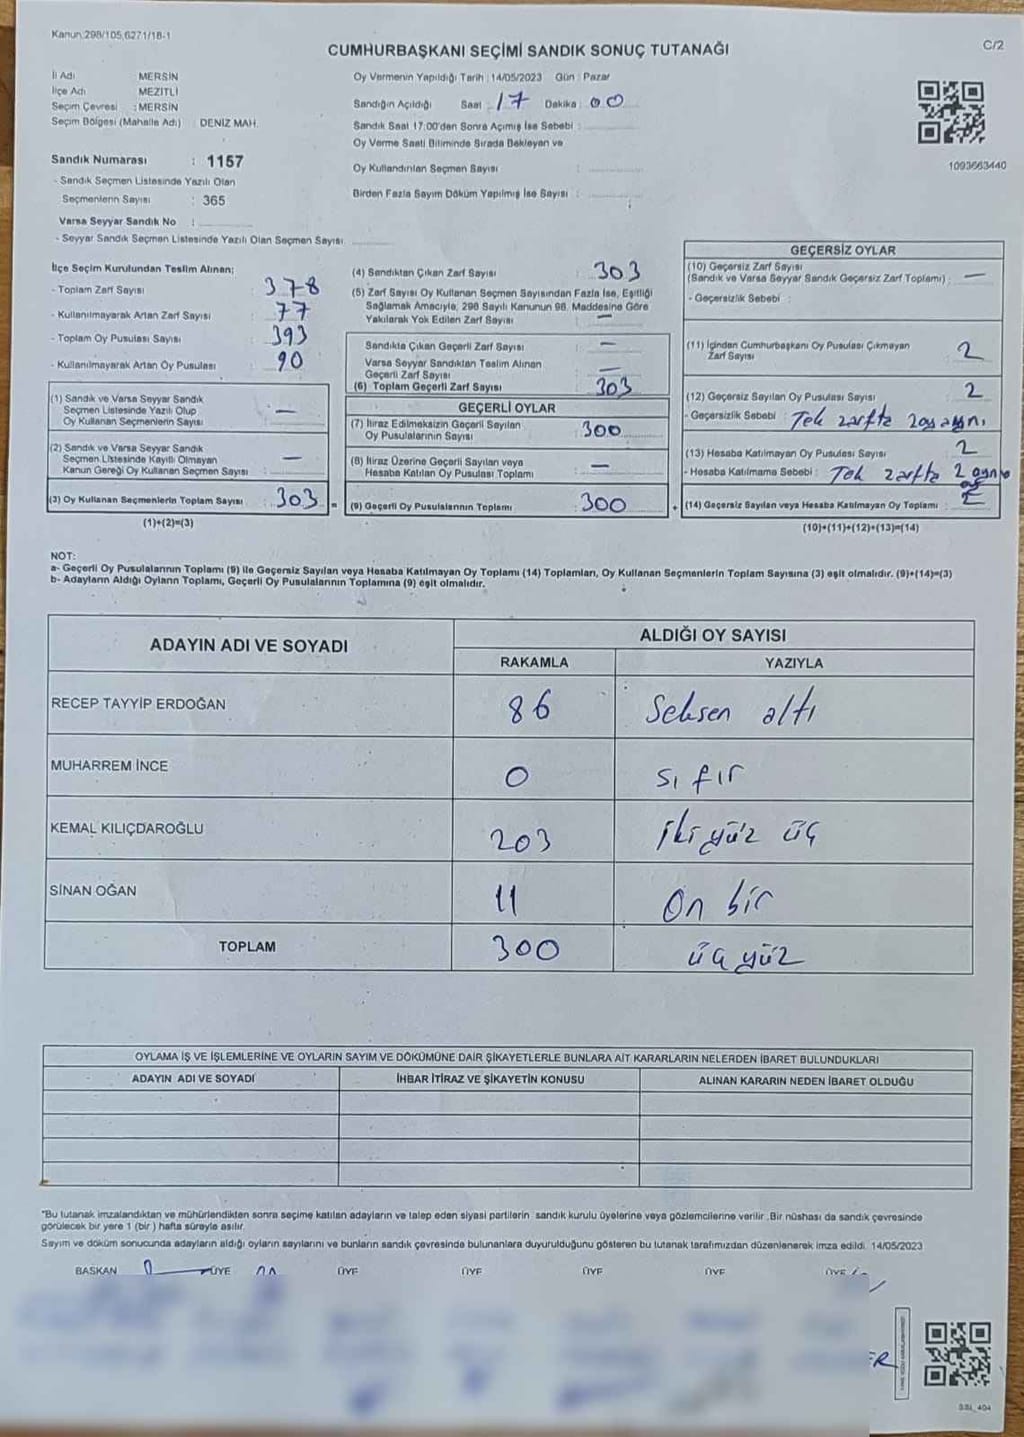 Kanun:298/105,6271/18-1
CUMHURBAŞKANI SEÇİMİ SANDIK SONUÇ TUTANAĞI
C/2
İl Adı : MERSİN
İlçe Adı : MEZİTLİ
Seçim Çevresi : MERSİN
Seçim Bölgesi (Mahalle Adı) : DENİZ MAH.
Oy Vermenin Yapıldığı Tarih : 14/05/2023 Gün : Pazar
Sandığın Açıldığı Saat : 17 Dakika : 00
Sandık Saat 17:00'den Sonra Açımış İse Sebebi :
Oy Verme Saati Bitiminde Sırada Bekleyen ve
Oy Kullandırılan Seçmen Sayısı :
Birden Fazla Sayım Döküm Yapılmış İse Sayısı :
1093663440
Sandık Numarası : 1157
- Sandık Seçmen Listesinde Yazılı Olan
Seçmenlerin Sayısı : 365
Varsa Seyyar Sandık No :
- Seyyar Sandık Seçmen Listesinde Yazılı Olan Seçmen Sayısı
İlçe Seçim Kurulundan Teslim Alınan;
- Toplam Zarf Sayısı : 378
- Kullanılmayarak Artan Zarf Sayısı : 77
- Toplam Oy Pusulası Sayısı : 393
- Kullanılmayarak Artan Oy Pusulası : 90
(1) Sandık ve Varsa Seyyar Sandık
Seçmen Listesinde Yazılı Olup
Oy Kullanan Seçmenlerin Sayısı : —
(2) Sandık ve Varsa Seyyar Sandık
Seçmen Listesinde Kayıtlı Olmayan
Kanun Gereği Oy Kullanan Seçmen Sayısı : —
(3) Oy Kullanan Seçmenlerin Toplam Sayısı : 303
(1)+(2)=(3)
(4) Sandıktan Çıkan Zarf Sayısı : 303
(5) Zarf Sayısı Oy Kullanan Seçmen Sayısından Fazla İse, Eşitliği
Sağlamak Amacıyla, 298 Sayılı Kanunun 98. Maddesine Göre
Yakılarak Yok Edilen Zarf Sayısı : —
Sandıkta Çıkan Geçerli Zarf Sayısı : —
Varsa Seyyar Sandıktan Teslim Alınan
Geçerli Zarf Sayısı : —
(6) Toplam Geçerli Zarf Sayısı : 303
GEÇERLİ OYLAR
(7) İtiraz Edilmeksizin Geçerli Sayılan
Oy Pusulalarının Sayısı : 300
(8) İtiraz Üzerine Geçerli Sayılan veya
Hesaba Katılan Oy Pusulası Toplamı : —
(9) Geçerli Oy Pusulalarının Toplamı : 300
GEÇERSİZ OYLAR
(10) Geçersiz Zarf Sayısı
(Sandık ve Varsa Seyyar Sandık Geçersiz Zarf Toplamı) : —
- Geçersizlik Sebebi :
(11) İçinden Cumhurbaşkanı Oy Pusulası Çıkmayan
Zarf Sayısı : 2
(12) Geçersiz Sayılan Oy Pusulası Sayısı : 2
- Geçersizlik Sebebi : Tek zarfta
(13) Hesaba Katılmayan Oy Pusulası Sayısı : 2
- Hesaba Katılmama Sebebi : Tek zarfta 2 aynı
(14) Geçersiz Sayılan veya Hesaba Katılmayan Oy Toplamı :
(10)+(11)+(12)+(13)=(14)
NOT:
a- Geçerli Oy Pusulalarının Toplamı (9) ile Geçersiz Sayılan veya Hesaba Katılmayan Oy Toplamı (14) Toplamları, Oy Kullanan Seçmenlerin Toplam Sayısına (3) eşit olmalıdır. (9)+(14)=(3)
b- Adayların Aldığı Oyların Toplamı, Geçerli Oy Pusulalarının Toplamına (9) eşit olmalıdır.
ADAYIN ADI VE SOYADI
ALDIĞI OY SAYISI
RAKAMLA YAZIYLA
RECEP TAYYİP ERDOĞAN 86 Seksen altı
MUHARREM İNCE 0 sıfır
KEMAL KILIÇDAROĞLU 203 iki yüz üç
SİNAN OĞAN 11 On bir
TOPLAM 300 üç yüz
OYLAMA İŞ VE İŞLEMLERİNE VE OYLARIN SAYIM VE DÖKÜMÜNE DAİR ŞİKAYETLERLE BUNLARA AİT KARARLARIN NELERDEN İBARET BULUNDUKLARI
ADAYIN ADI VE SOYADI İHBAR İTİRAZ VE ŞİKAYETİN KONUSU ALINAN KARARIN NEDEN İBARET OLDUĞU
"Bu tutanak imzalandıktan ve mühürlendikten sonra seçime katılan adayların ve talep eden siyasi partilerin sandık kurulu üyelerine veya gözlemcilerine verilir. Bir nüshası da sandık çevresinde
görülecek bir yere 1 (bir) hafta süreyle asılır.
Sayım ve döküm sonucunda adayların aldığı oyların sayılarını ve bunların sandık çevresinde bulunanlara duyurulduğunu gösteren bu tutanak tarafımızdan düzenlenerek imza edildi. 14/05/2023
BAŞKAN ÜYE ÜYE ÜYE ÜYE ÜYE ÜYE